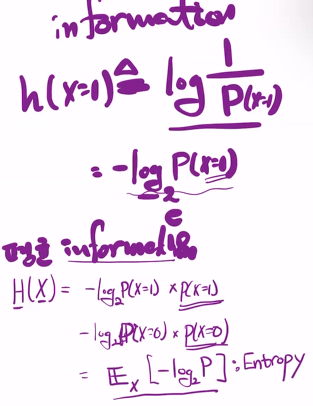 information
h(x=1) ≜ log 1/P(x=1)
= -log₂ P(x=1)
e
평균 information
H(X) = -log₂P(X=1) × P(X=1)
-log₂P(X=0) × P(X=0)
= 𝔼ₓ [-log₂P] : Entropy